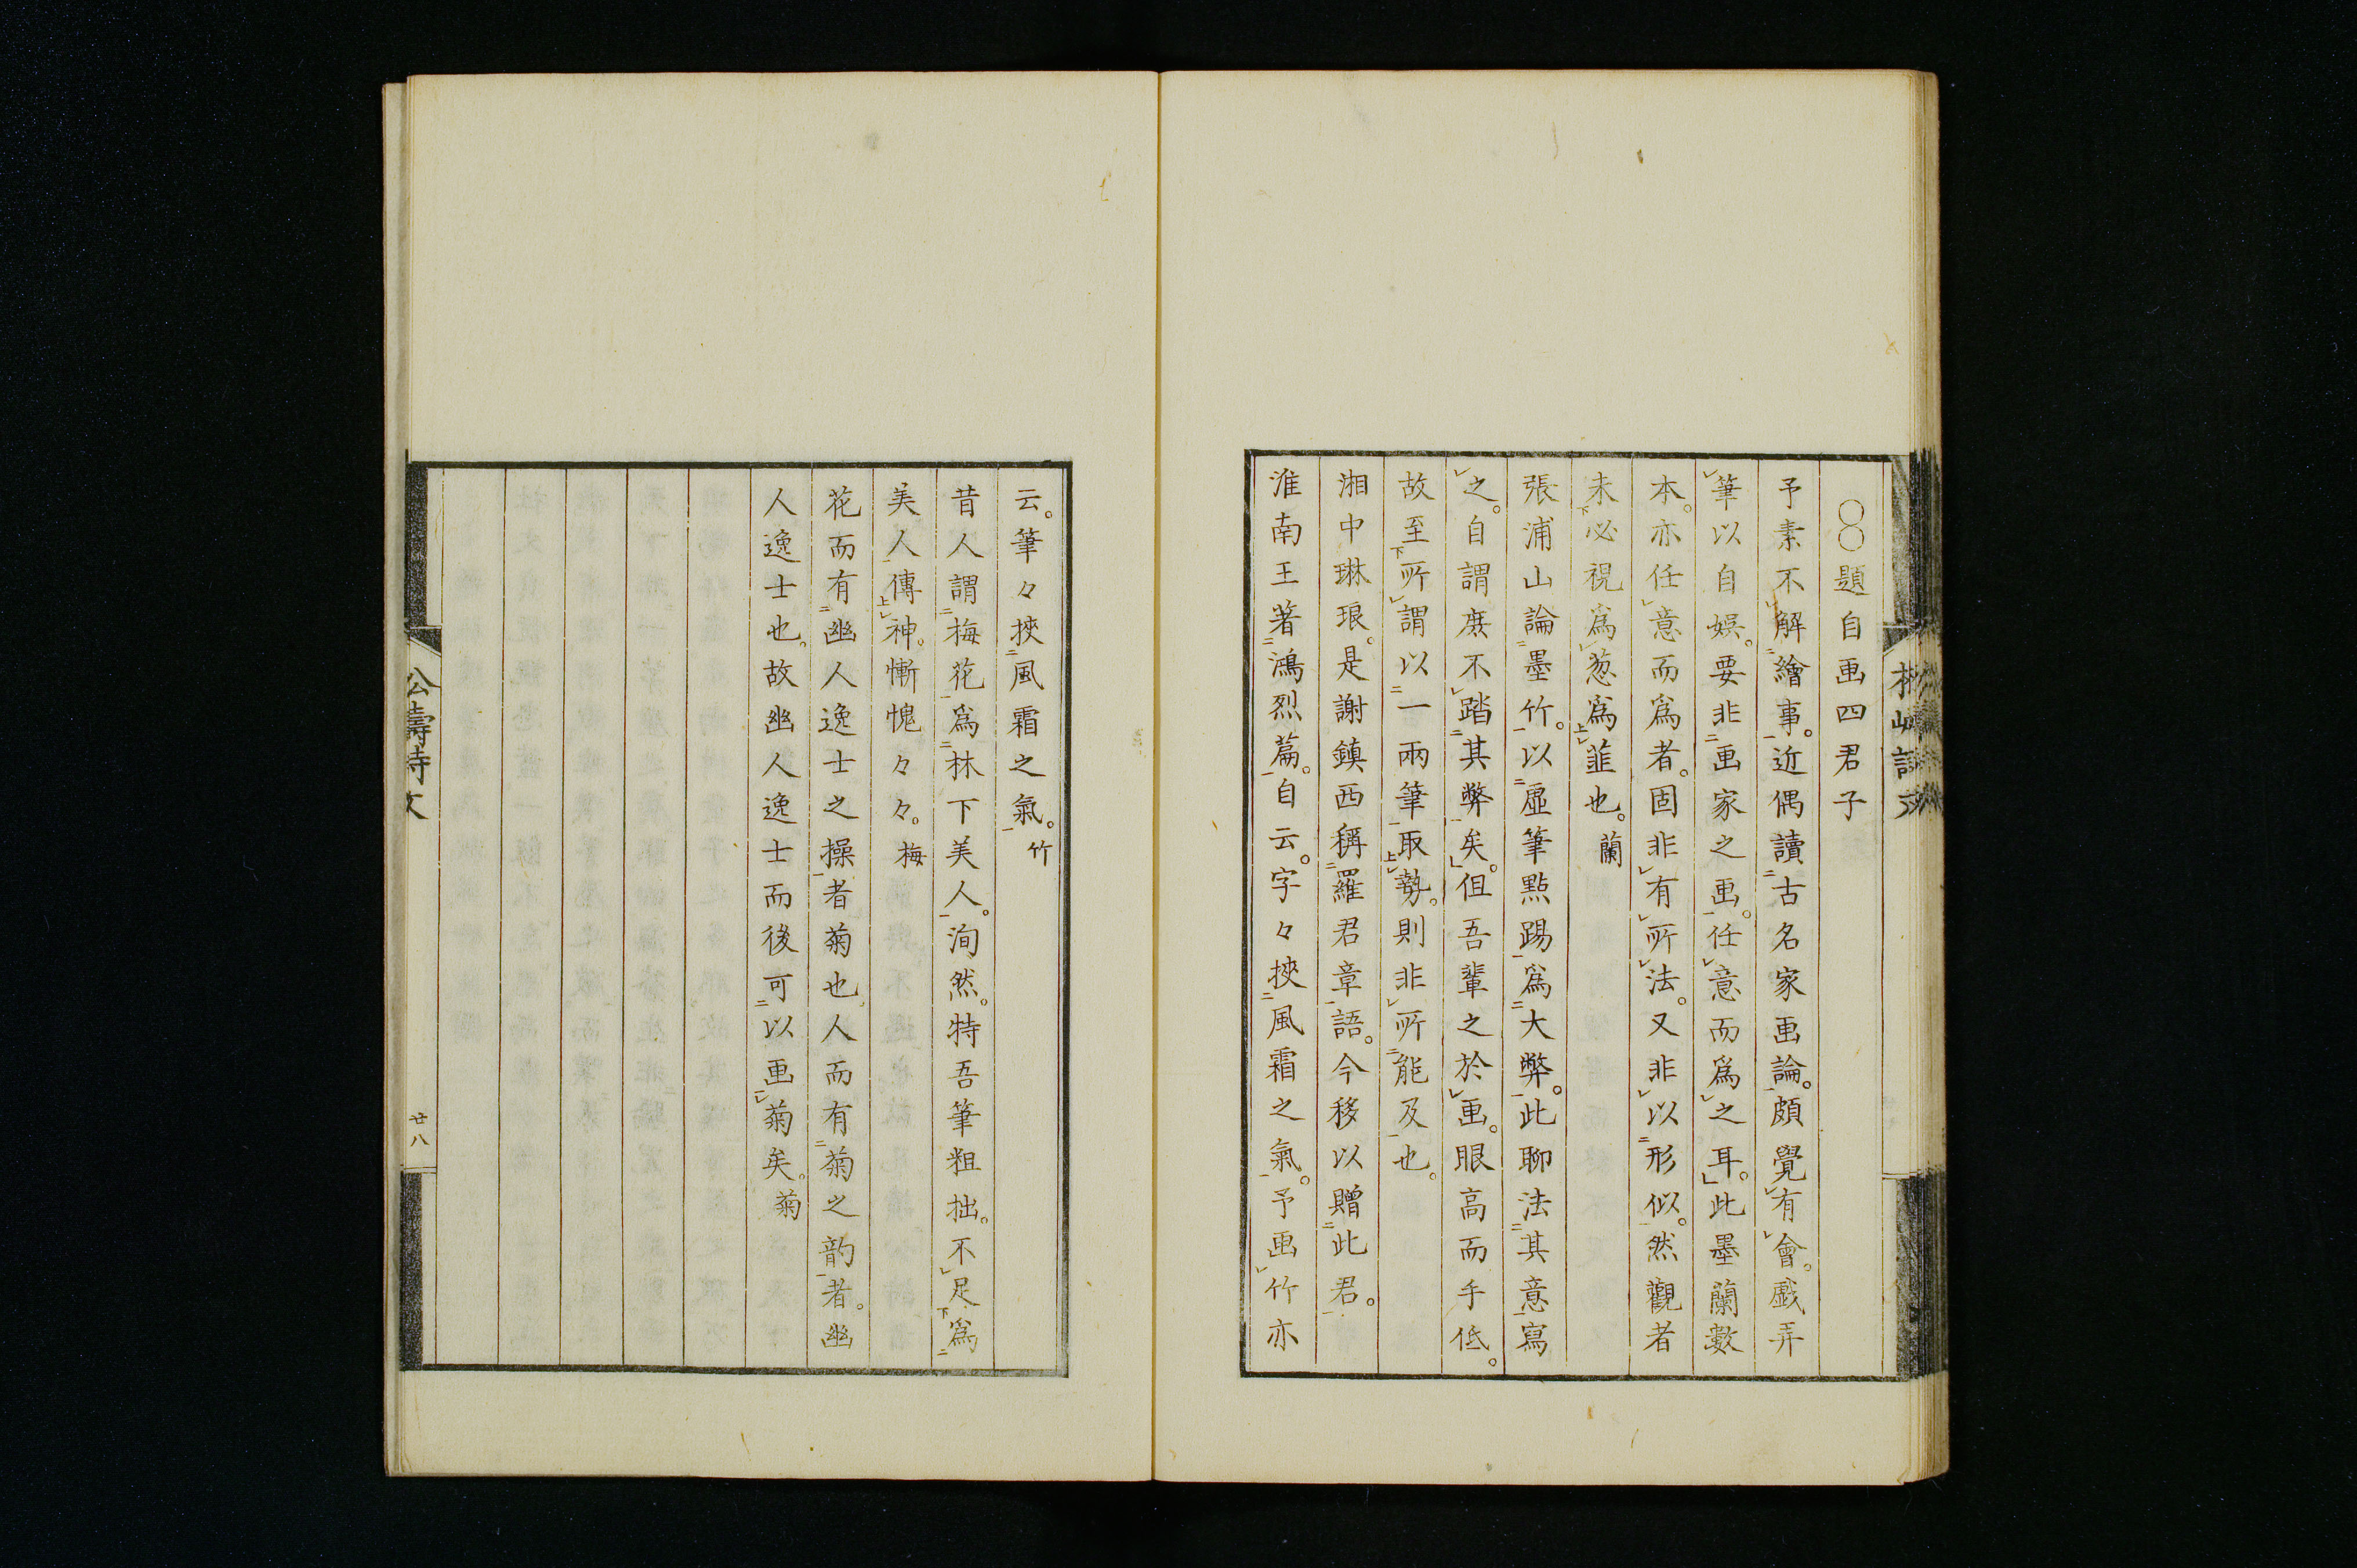 〇〇題自画四君子
予素不解繪事。近偶讀古名家画論。頗覺有會。戲弄
筆以自娯。要非画家之画。任意而爲之耳。」此墨蘭數
本。亦任意而爲者。固非有所法。又非以形似。然觀者
未必視爲葱爲韮也。蘭
張浦山論墨竹。以虛筆點踢爲大弊。此聊法其意寫
之。自謂庶不踏其弊矣。」但吾輩之於画。眼高而手低。
故至所謂以一兩筆取勢。則非所能及也。
湘中琳琅。是謝鎮西稱羅君章語。今移以贈此君。
淮南王著鴻烈篇。自云。字々挾風霜之氣。予画竹亦
云。筆々挾風霜之氣。竹
昔人謂梅花爲林下美人。洵然。特吾筆粗拙。不足爲
美人傳神。慚愧々々。梅
花而有幽人逸士之操者菊也。人而有菊之韵者。幽
人逸士也。故幽人逸士而後可以画菊矣。菊
公壽詩文
廿八